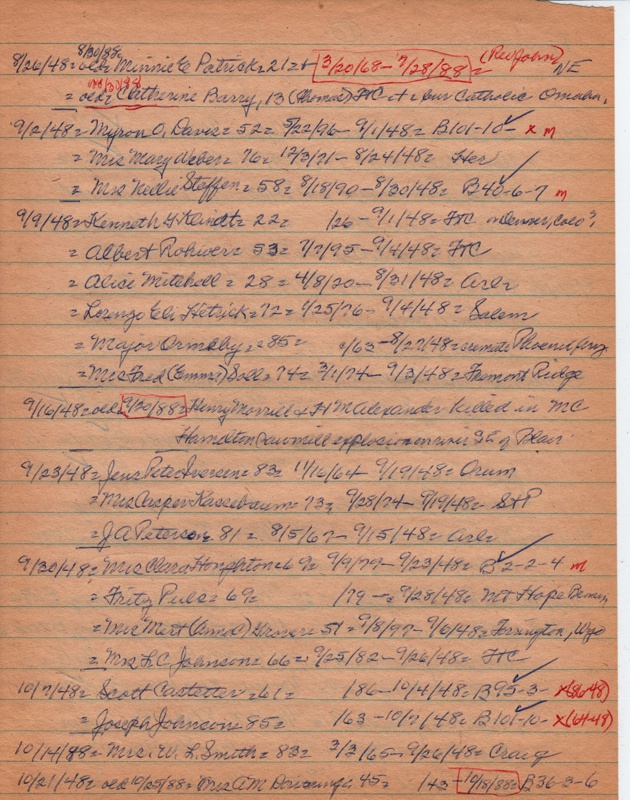 8/30/88
8/26/48 = old = Minnie E Patrick = 21 = 3/20/68 - 7/28/88 = (Red John) N/E
= old = Catherine Barry, 13 (Thomas) FTC + bur Catholic Omaha,
9/2/48 = Myron O. Davis = 52 = 5/22/96 - 9/1/48 = B101-10 - x m
= Mrs Mary Weber = 76 = 12/3/71 - 8/24/48 = Her
= Mrs Nellie Steffen = 58 = 8/18/90 - 8/30/48 = B40-6-7 m
9/9/48 = Kenneth = 22 = /26 - 9/1/48 = FTC in Denver, Colo
= Albert Rohwer = 53 = 7/7/95 - 9/4/48 = FTC
= Alice Mitchell = 28 = 4/8/20 - 8/31/48 = Arl =
= Lorenzo Eli Hetrick = 72 = 1/25/76 - 9/4/48 = Salem
= Major Ormsby = 85 = /63 - 8/27/48 = Phoenix, Ariz
= Mrs Fred (Emma) = 74 = 3/1/74 - 9/3/48 = Fremont Ridge
9/16/48 = old 9/20/88 = Henry Morrill + H M Alexander killed in MC
Hamilton sawmill explosion on river of Blair
9/23/48 = Jens Peter Iversen = 83 = 11/16/64 - 9/19/48 = Orum
= Mrs Casper Kassebaum = 73 = 9/28/74 - 9/19/48 = StP
= J A Peterson = 81 = 8/5/67 - 9/15/48 = Arl =
9/30/48 = Mrs Clara Houghton = 69 = 9/9/79 - 9/23/48 = B2-2-4 m
= Fritz Puls = 69 = /79 - = 9/28/48 = Mt Hope
= Mrs Mert (Anna) = 51 = 9/8/97 - 9/6/48 = Torrington, Wyo
= Mrs L.C. Johnson = 66 = 9/25/82 - 9/26/48 = FTC
10/7/48 = Scott Castetter = 61 = /86 - 10/4/48 = B95-3 - x (86-48)
= Joseph Johnson = 85 = /63 - 10/7/48 = B101-10 - x (64-48)
10/14/88 = Mrs. W. L. Smith = 83 = 3/3/65 - 9/26/48 = Craig
10/21/48 = old 10/25/88 = Mrs A M 45 = /43 - 10/18/88 = B36-3-6